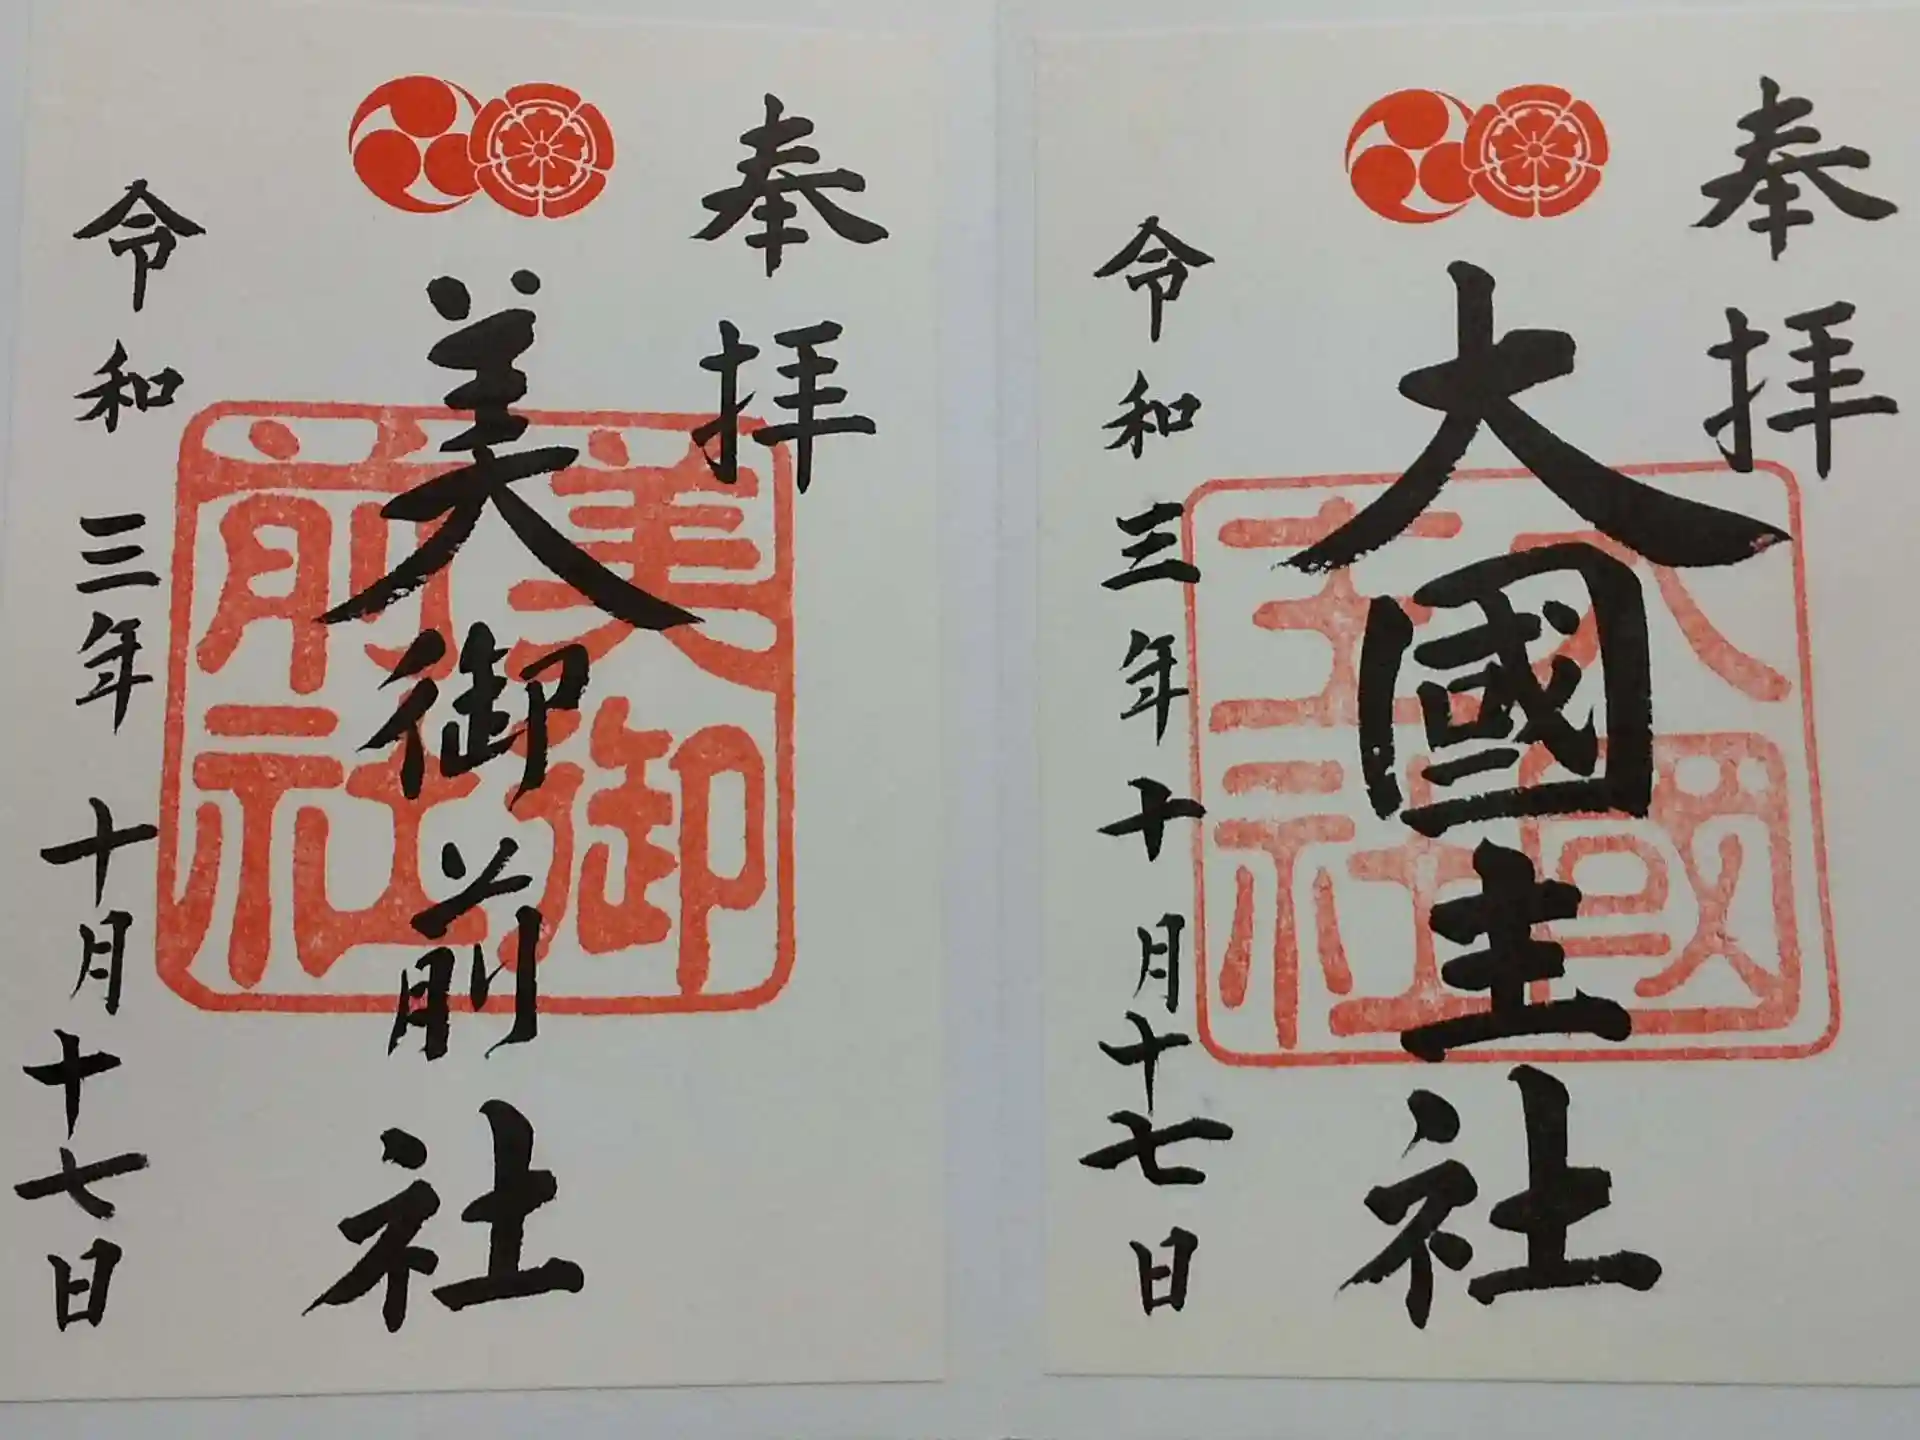 奉拝
大國主社
大國主社
令和三年十月十七日
奉拝
美御前社
美御前社
令和三年十月十七日